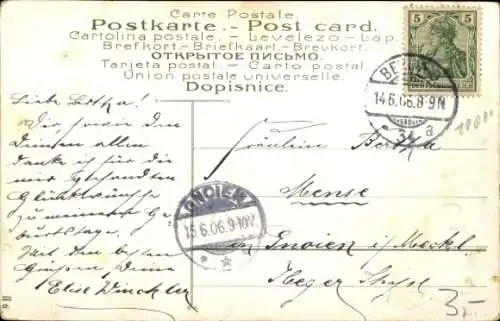 Carte Postale.
Postkarte. - Post card.
Cartolina postale. - Levelezo - Lap.
Brefkort - Briefkaart - Brevkort.
ОТКРЫТОЕ ПИСЬМО.
Tarjeta postal. - Carto postal
Union postale universelle.
Dopisnice.
5 5
DEUTSCHES REICH
14.6.06.8-9N
34 a
Liebe Bertha!
Dir, sowie den
Deinen allen
danke ich für die
mir gesandten
Glückwünsche
zu meinem Ge-
burtstage.
Mit den besten
Grüßen, Deine
Elise Winckler
GNOIEN
15.6.06.9-10V.
Fräulein Bertha
Mense
in Gnoien i/Meckl.
3-